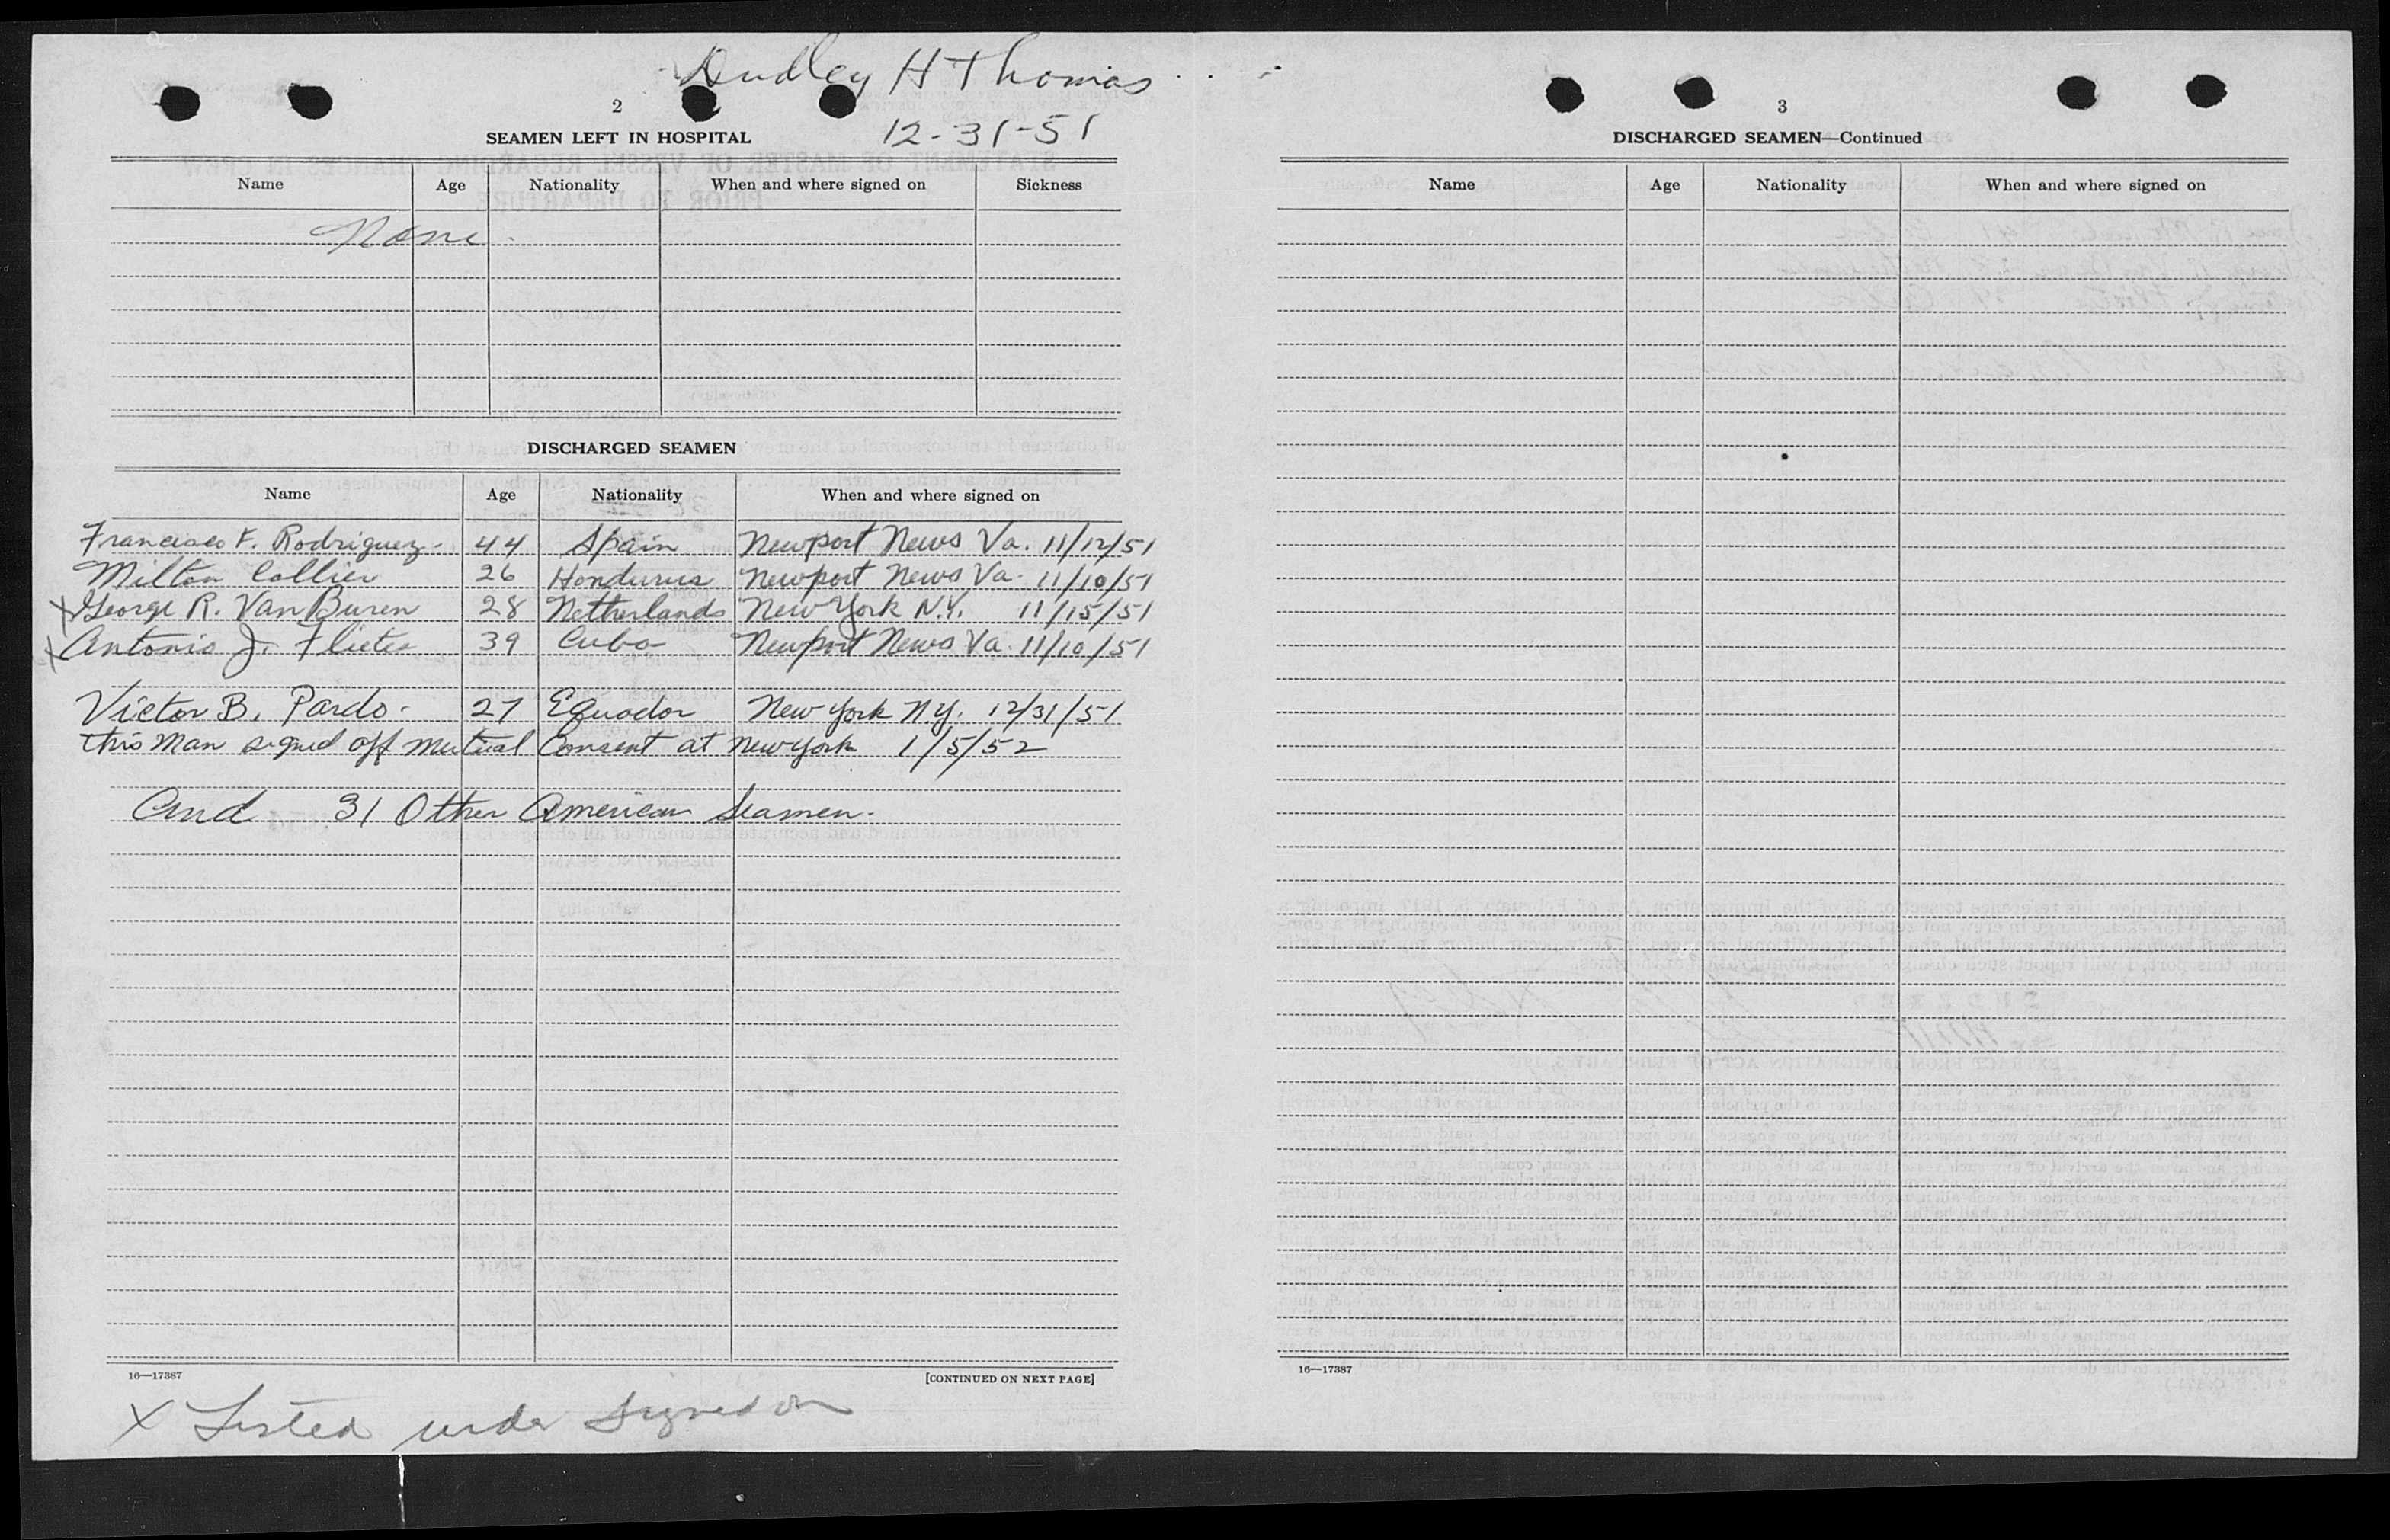 Dudley H Thomas
2
12-31-51
SEAMEN LEFT IN HOSPITAL
Name Age Nationality When and where signed on Sickness
None
DISCHARGED SEAMEN
Name Age Nationality When and where signed on
Francisco F. Rodriguez. 44 Spain Newport News Va. 11/12/51
Milton Collier 26 Hondurus Newport News Va. 11/10/51
X George R. Van Buren 28 Netherlands New York N.Y. 11/15/51
X Antonio J. Flietes 39 Cuba Newport News Va. 11/10/51
Victor B. Pardo. 27 Equador New York NY. 12/31/51
this Man signed off mutual Consent at New York 1/5/52
And 31 Other American Seamen.
16—17387
[CONTINUED ON NEXT PAGE]
X Listed under signed on
3
DISCHARGED SEAMEN—Continued
Name Age Nationality When and where signed on
16—17387